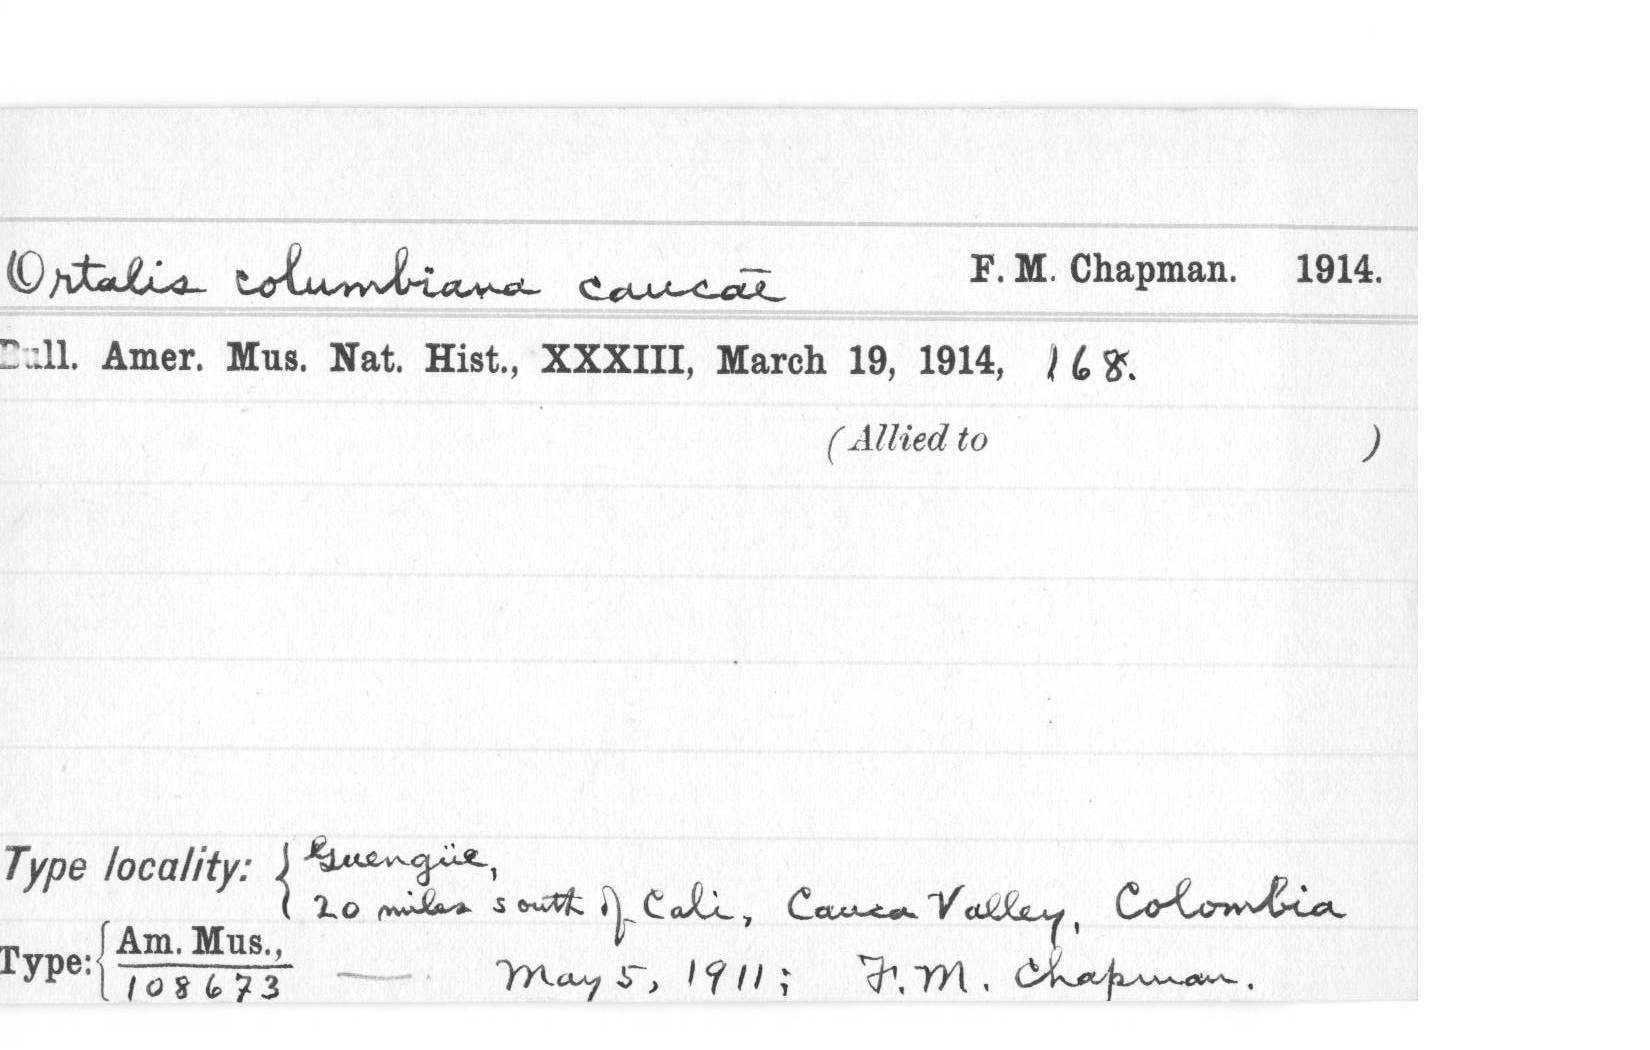 Ortalis columbiana caucae F. M. Chapman. 1914.
Bull. Amer. Mus. Nat. Hist., XXXIII, March 19, 1914, 168.
(Allied to )
Type locality: { Guengüe,
20 miles south of Cali, Cauca Valley, Colombia
Type: { Am. Mus.,
108673 — May 5, 1911; F. M. Chapman.